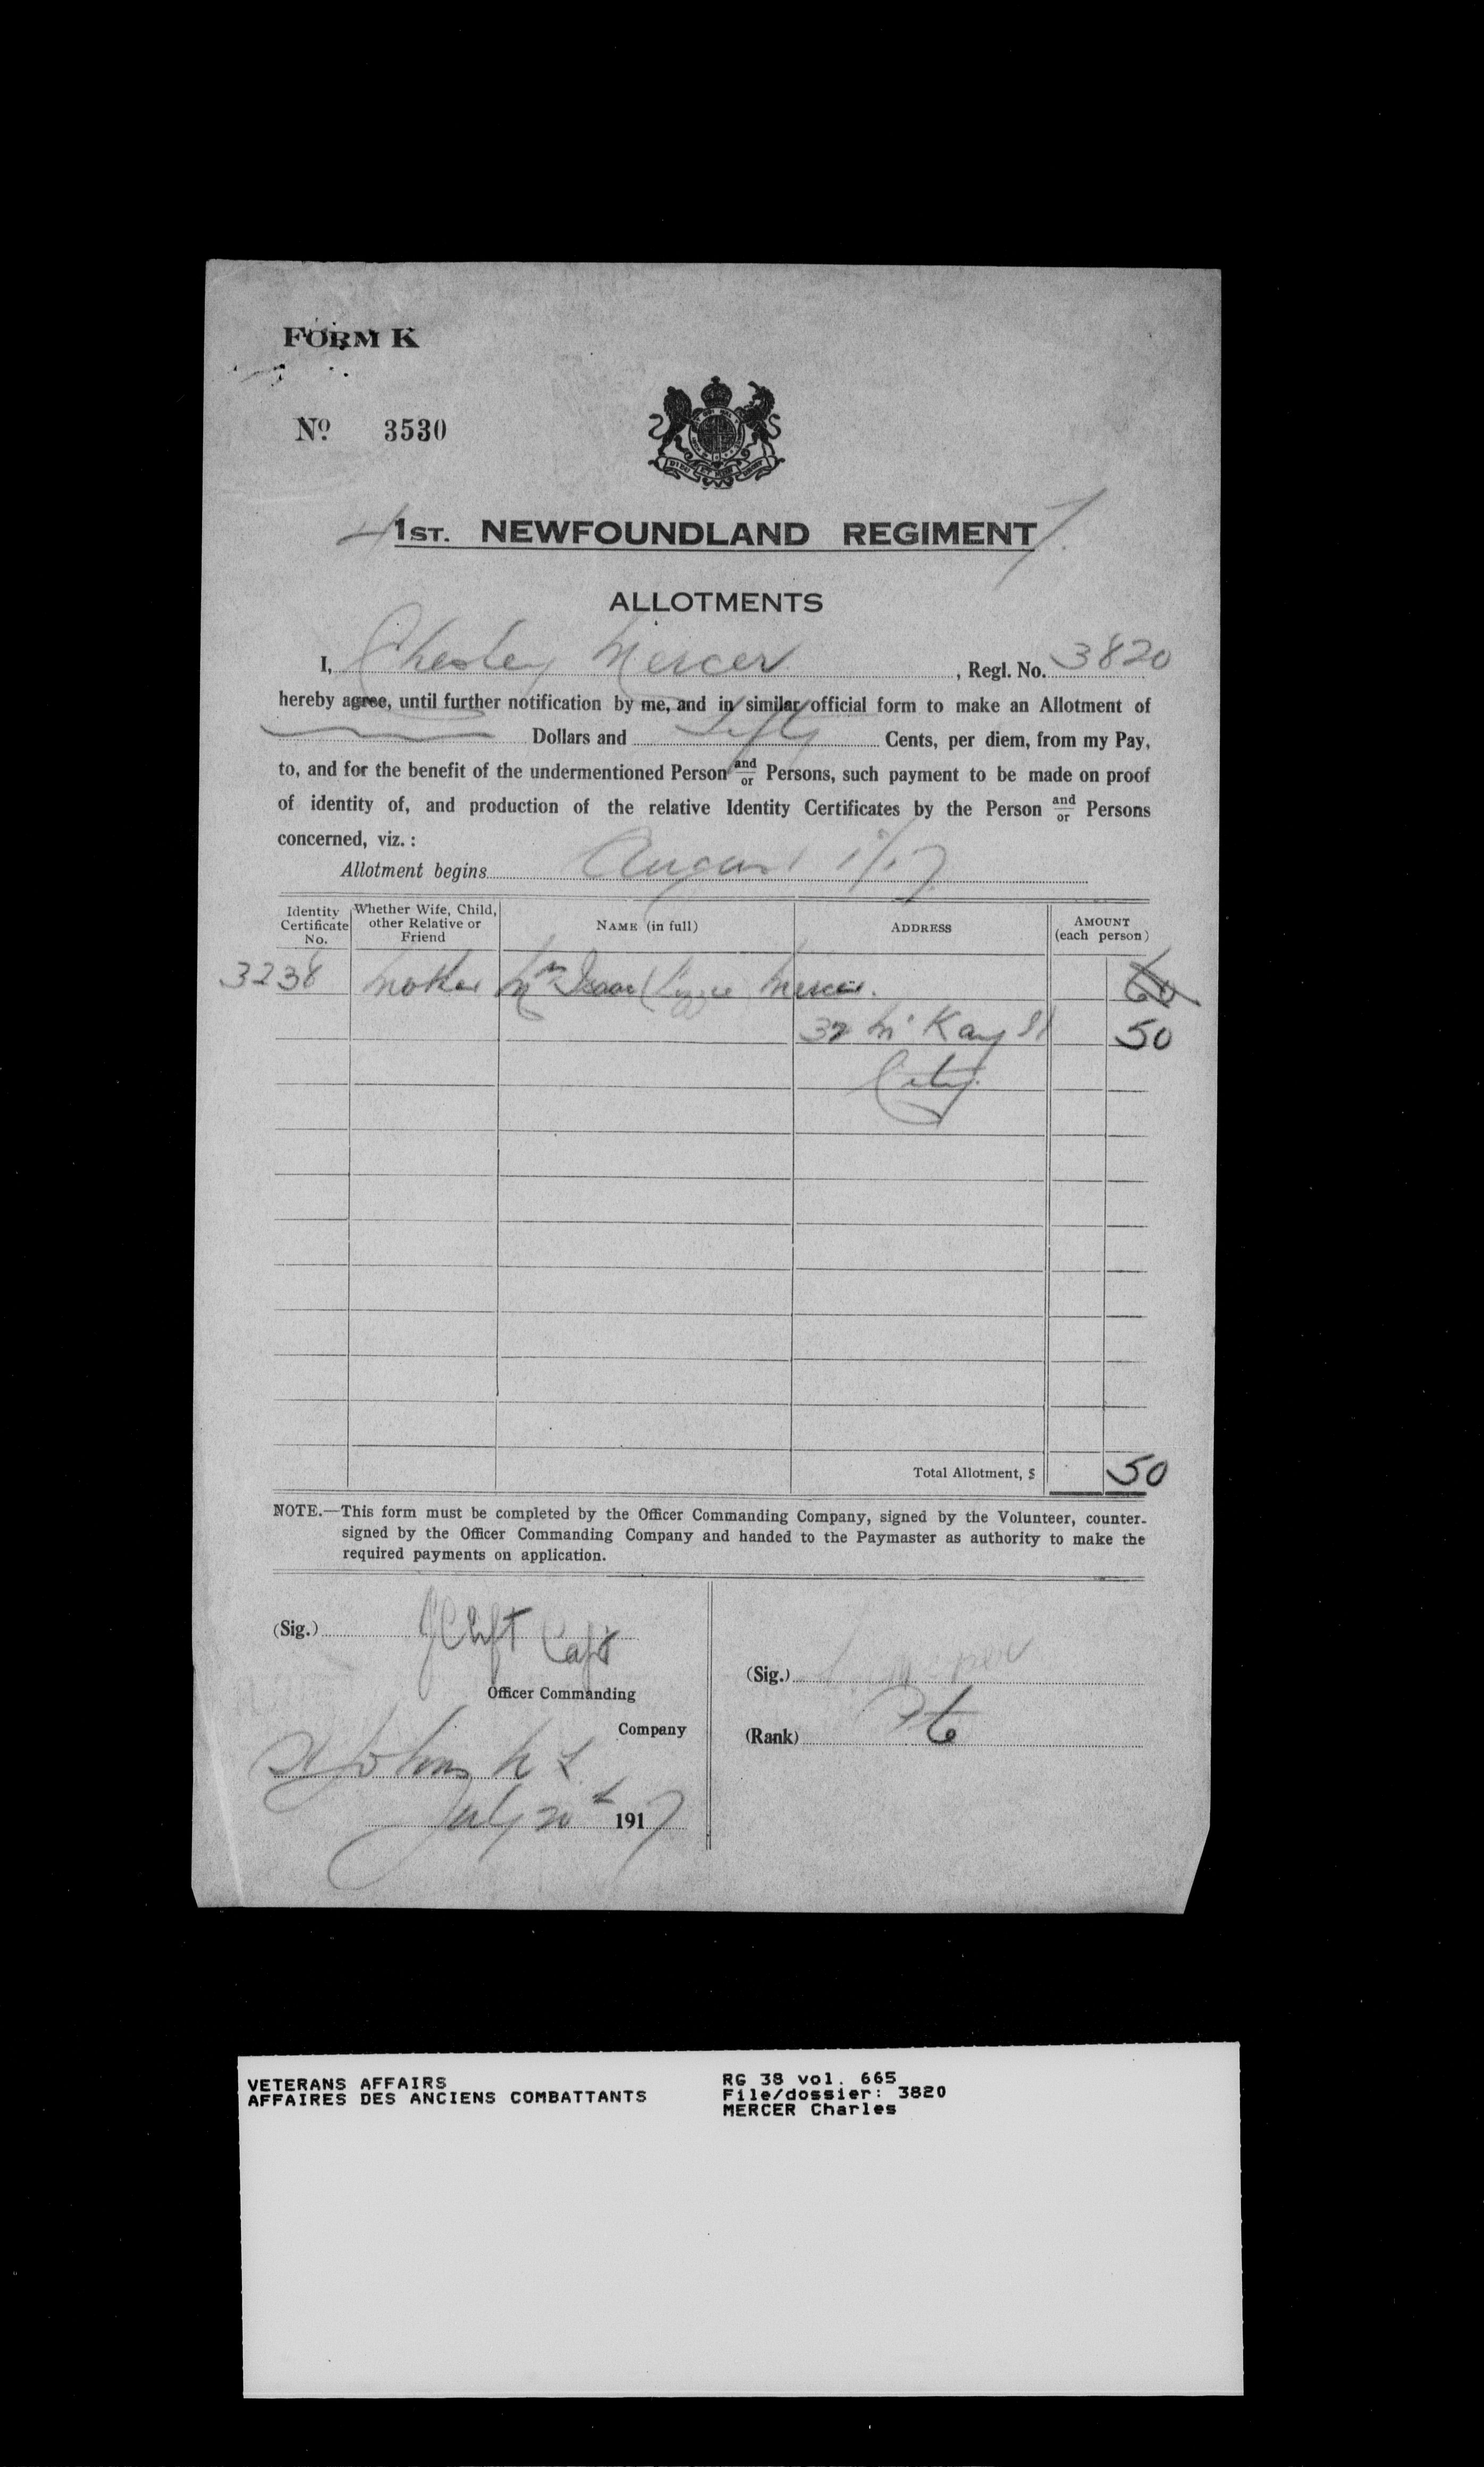 FORM K
No. 3530
1ST. NEWFOUNDLAND REGIMENT
ALLOTMENTS
I, Chesley Mercer, Regl. No. 3820
hereby agree, until further notification by me, and in similar official form to make an Allotment of
Dollars and Fifty Cents, per diem, from my Pay,
to, and for the benefit of the undermentioned Person and/or Persons, such payment to be made on proof
of identity of, and production of the relative Identity Certificates by the Person and/or Persons
concerned, viz. :
Allotment begins August 1/17
Identity Certificate No. Whether Wife, Child, other Relative or Friend NAME (in full) ADDRESS AMOUNT (each person)
3238 Mother Mrs Isaac (Lizzie) Mercer. 60
32 McKay St 50
City.
Total Allotment, $ 50
NOTE.—This form must be completed by the Officer Commanding Company, signed by the Volunteer, counter-
signed by the Officer Commanding Company and handed to the Paymaster as authority to make the
required payments on application.
(Sig.) J Clift Capt
Officer Commanding
Company
St Johns N F
July 20th 1917
(Sig.) Mercer
(Rank) Pte
VETERANS AFFAIRS
AFFAIRES DES ANCIENS COMBATTANTS
RG 38 vol. 665
File/dossier: 3820
MERCER Charles